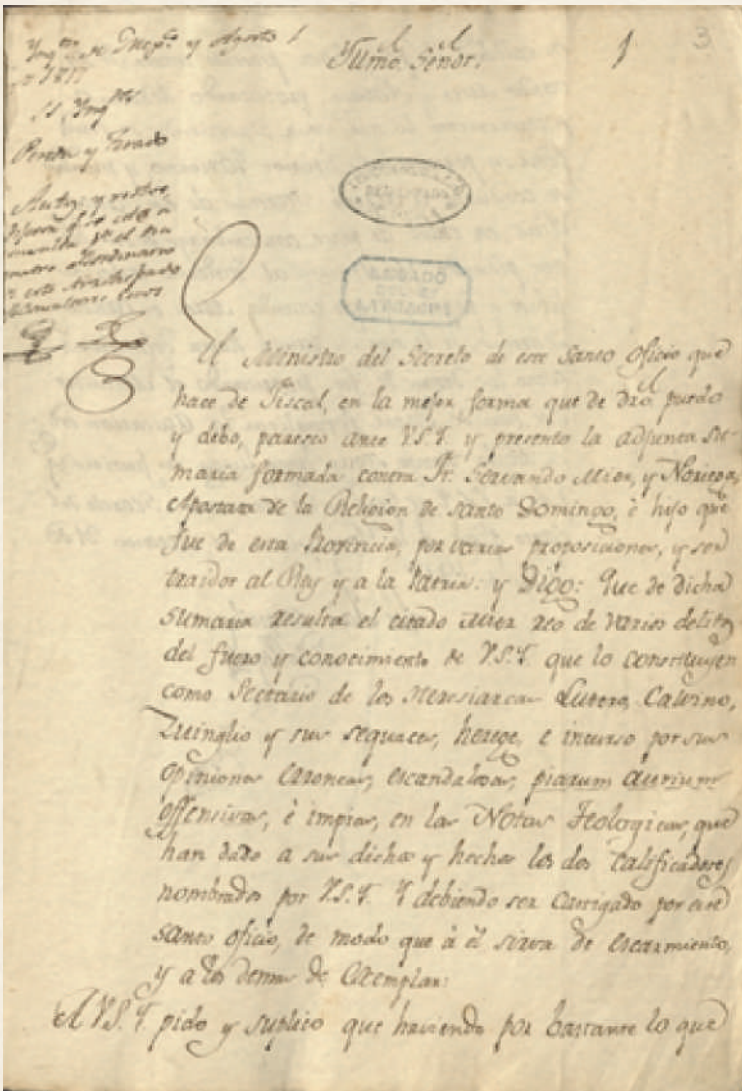 Ynqq.ⁿ de Mex.co y Agosto 1
de 1817
SS. Ynq.res
Pereda y Tirado
Autos, y
Yllmo. Señor:
1
3
El Ministro del Secreto de este Santo Oficio que
hace de Fiscal, en la mejor forma que de dro. puedo
y debo, paresco ante V.S.Y. y presento la adjunta Su-
maria formada contra Fr. Servando Mier, y Noriega,
Apostata de la Religion de Santo Domingo, è hijo que
fue de esta Provincia, por varias proposiciones, y ser
traidor al Rey y a la Patria: y Digo: Que de dicha
sumaria resulta el citado Mier reo de varios delitos
del fuero y conocimiento de V.S.Y. que lo constituyen
como Sectario de los Heresiarcas Lutero, Calvino,
Zuinglio y sus sequaces, herege, e incurso por sus
opiniones erroneas, escandalosas, piarum aurium
offensivas, è impias, en las Notas Teologicas, que
han dado a sus dichos y hechos los dos Calificadores
nombrados por V.S.Y. Y debiendo ser castigado por este
santo oficio, de modo que à èl sirva de escarmiento,
y a los demas de Exemplar:
A V.S.Y. pido y suplico que haviendo por bastante lo que